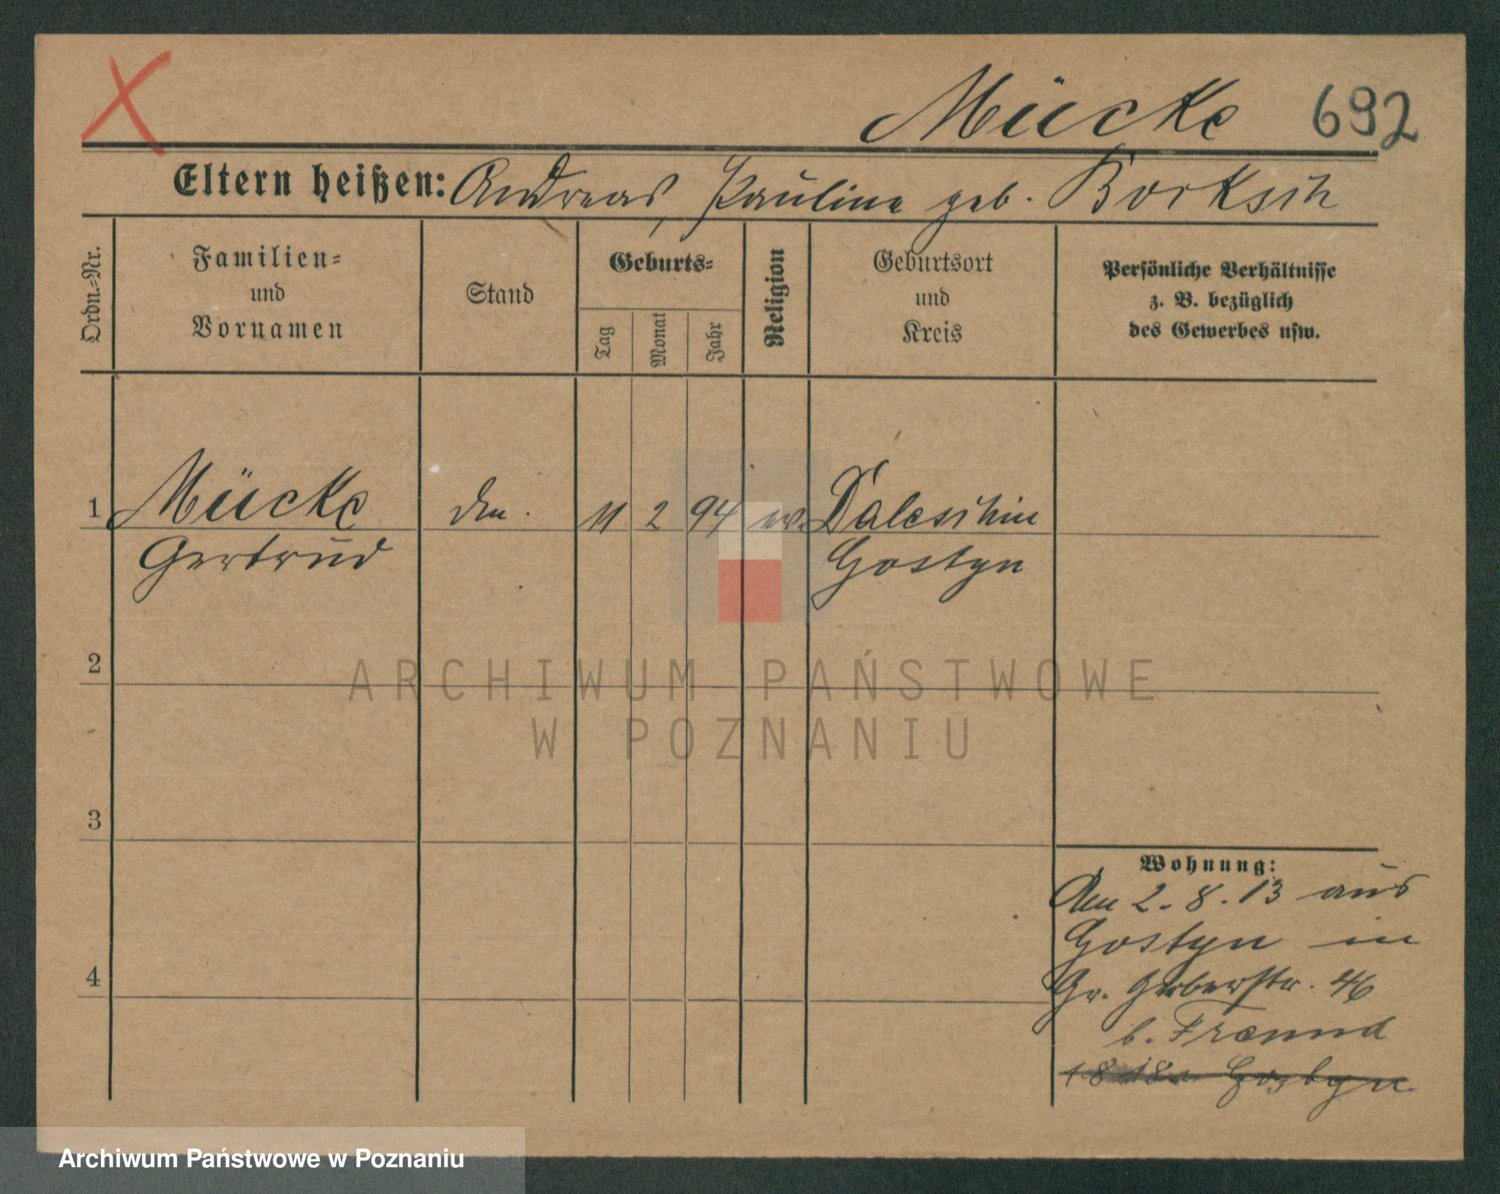 Mücke 692
Eltern heißen: Andreas, Pauline geb.
Ordn.=Nr.
Familien=
und
Vornamen
Stand
Geburts=
Tag
Monat
Jahr
Religion
Geburtsort
und
Kreis
Persönliche Verhältnisse
z. B. bezüglich
des Gewerbes usw.
1 Mücke 11 2 94
Gertrud Gostyn
2
3
4
Wohnung:
Am 2.8.13 aus
Gostyn in
Gr. Gerberstr. 46
b. Freund
Gostyn
ARCHIWUM PAŃSTWOWE
W POZNANIU
Archiwum Państwowe w Poznaniu